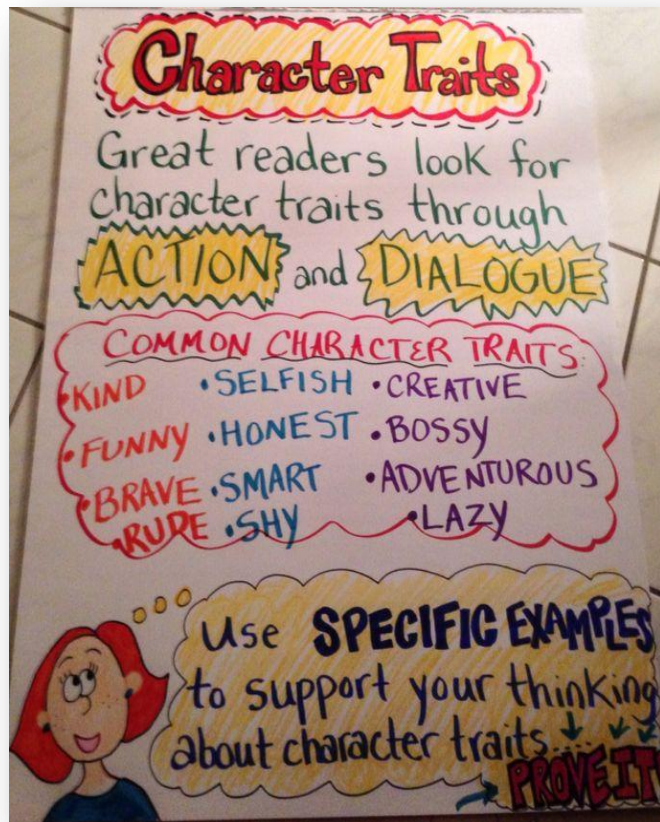 Character Traits
Great readers look for
character traits through
ACTION and DIALOGUE
COMMON CHARACTER TRAITS:
•KIND •SELFISH •CREATIVE
•FUNNY •HONEST •BOSSY
•BRAVE •SMART •ADVENTUROUS
•RUDE •SHY •LAZY
Use SPECIFIC EXAMPLES
to support your thinking
about character traits....
PROVE IT